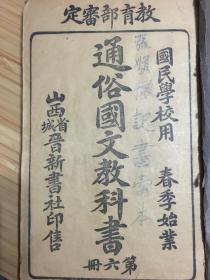 教育部審定
國民學校用
春季始業
通俗國文教科書
第六冊
山西省城晉新書社印售